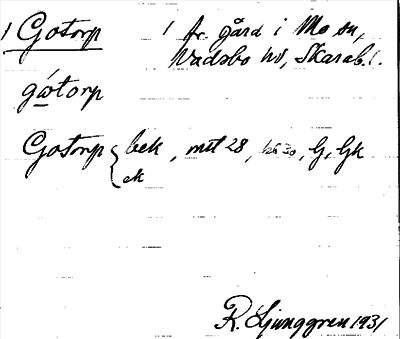 1 Gotorp 1 fr. gård i Mo sn,
Vadsbo hd, Skarab. l.
gótorp
Gotorp { bek, mtl 28, hs 30, G, Gk
ek
R. Ljunggren 1931